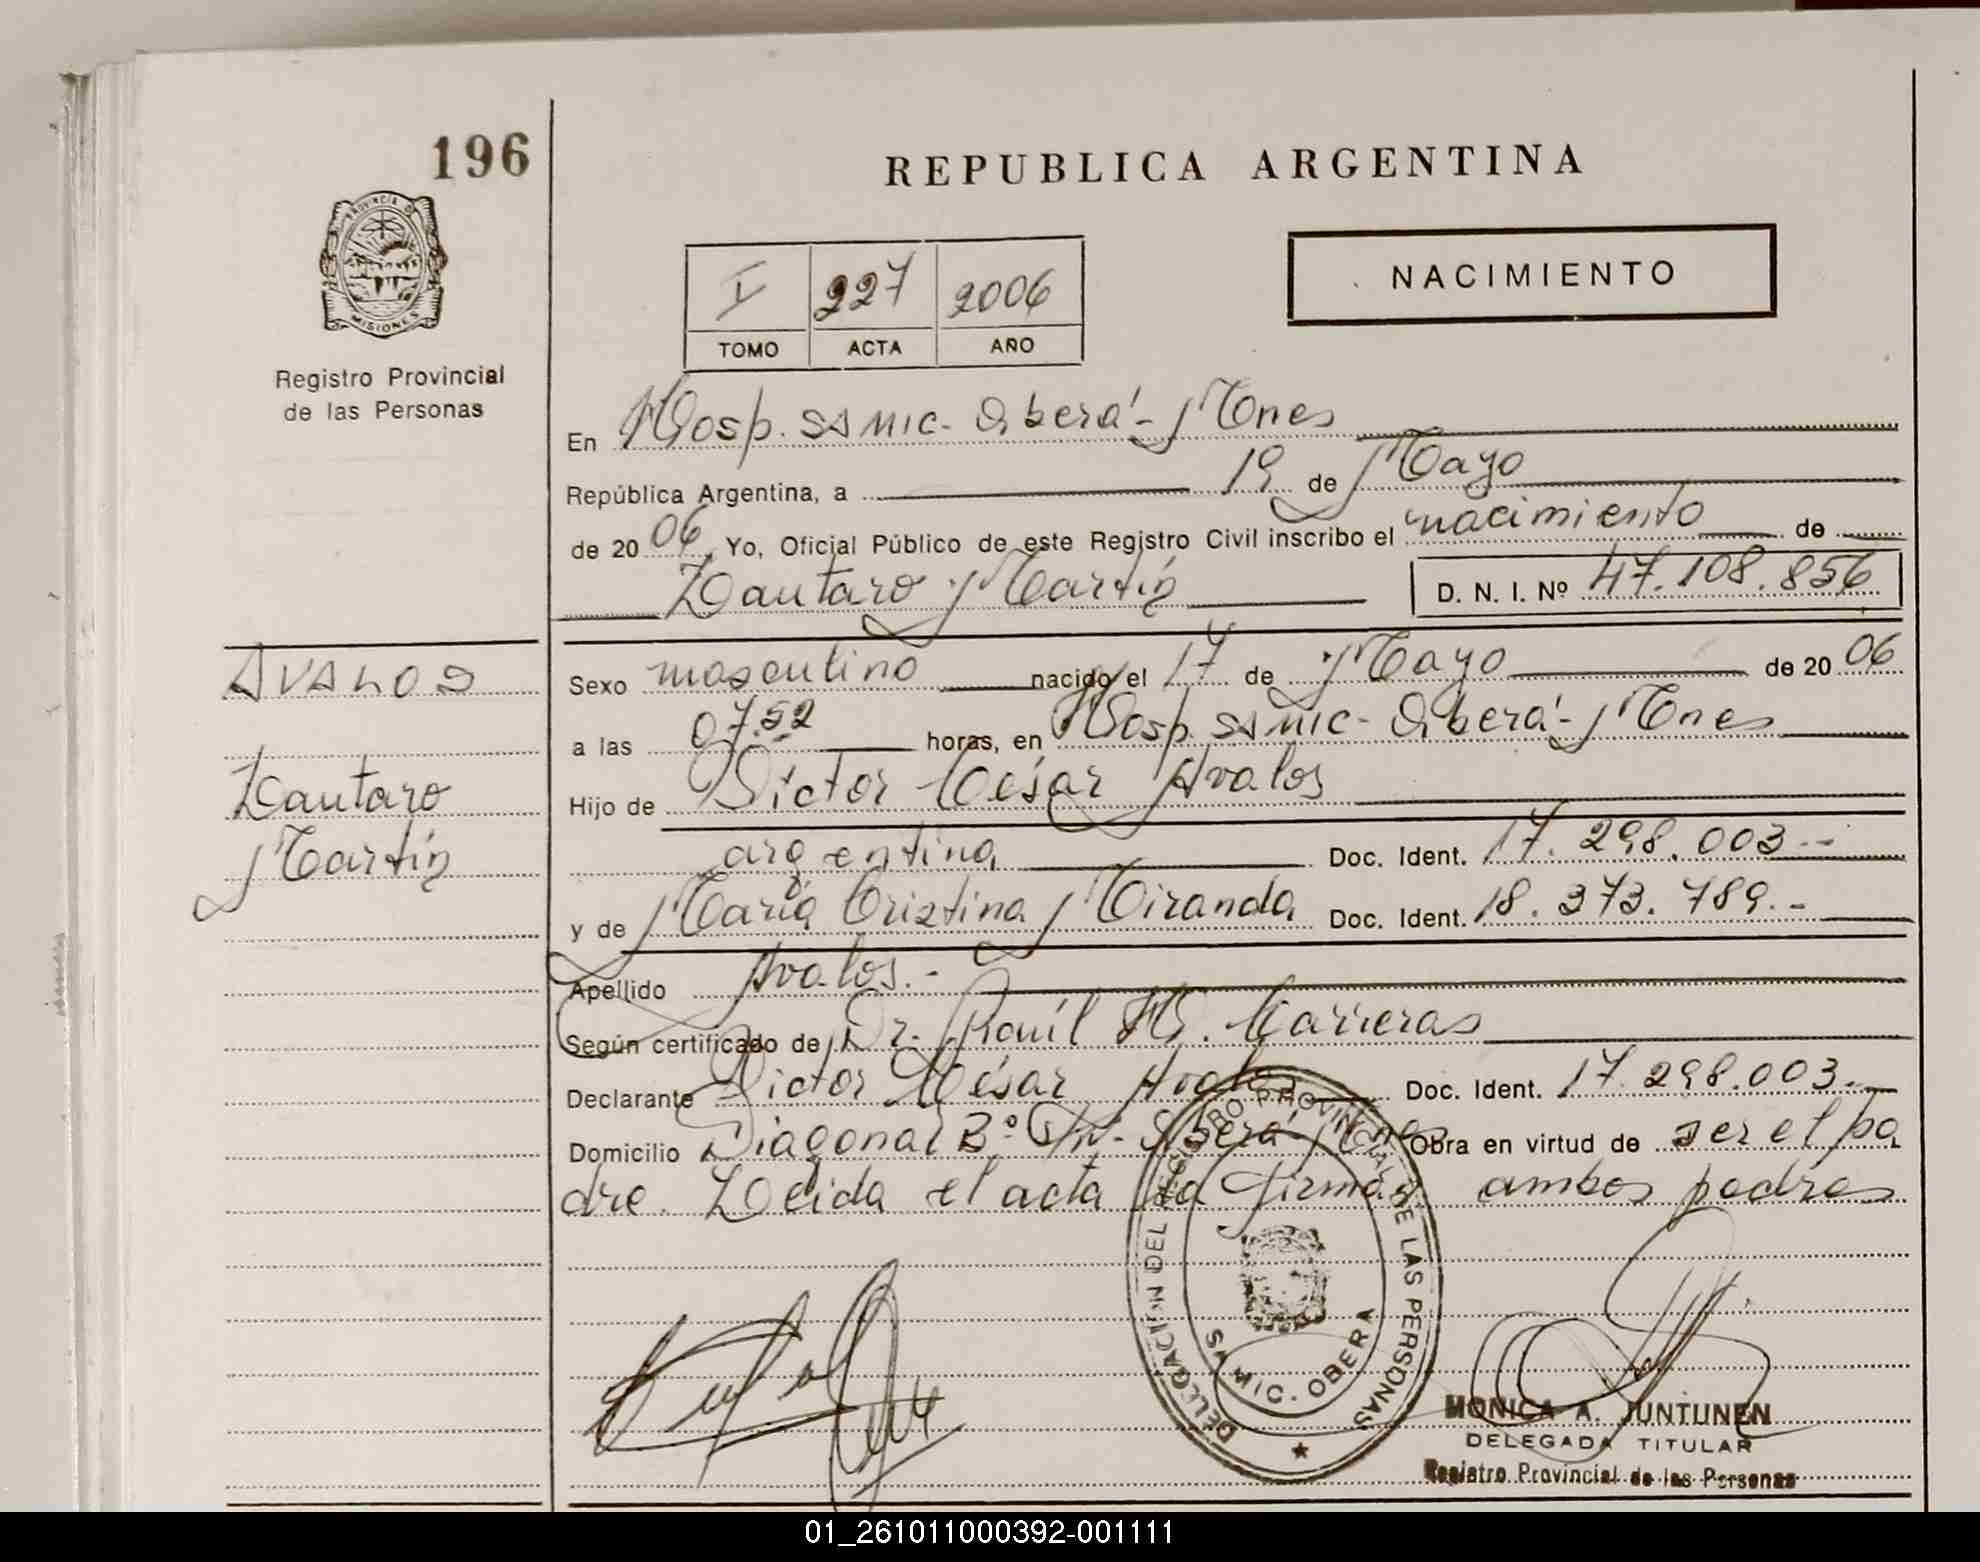 196
REPUBLICA ARGENTINA
PROVINCIA DE
MISIONES
Registro Provincial
de las Personas
I 227 2006
TOMO ACTA AÑO
NACIMIENTO
En Hosp. SAMIC - Oberá - Mnes
República Argentina, a 19 de Mayo
de 20 06, Yo, Oficial Público de este Registro Civil inscribo el nacimiento de
Lautaro Martín D. N. I. Nº 47.108.856
AVALOS
Sexo masculino nacido el 17 de Mayo de 20 06
a las 07.52 horas, en Hosp. SAMIC - Oberá - Mnes
Lautaro
Martín
Hijo de Victor César Avalos
argentina Doc. Ident. 17.298.003.--
y de María Cristina Miranda Doc. Ident. 18.373.789.-
Apellido Avalos.-
Según certificado de Dr. Raúl H. Carreras
Declarante Victor César Avalos Doc. Ident. 17.298.003.-
Domicilio Diagonal Bº - Oberá Mnes Obra en virtud de ser el pa
dre. Leida el acta la firman ambos padres
DELEGACION DEL REGISTRO PROVINCIAL DE LAS PERSONAS
SAMIC. OBERA
MONICA A. JUNTUNEN
DELEGADA TITULAR
Registro Provincial de las Personas
01_261011000392-001111